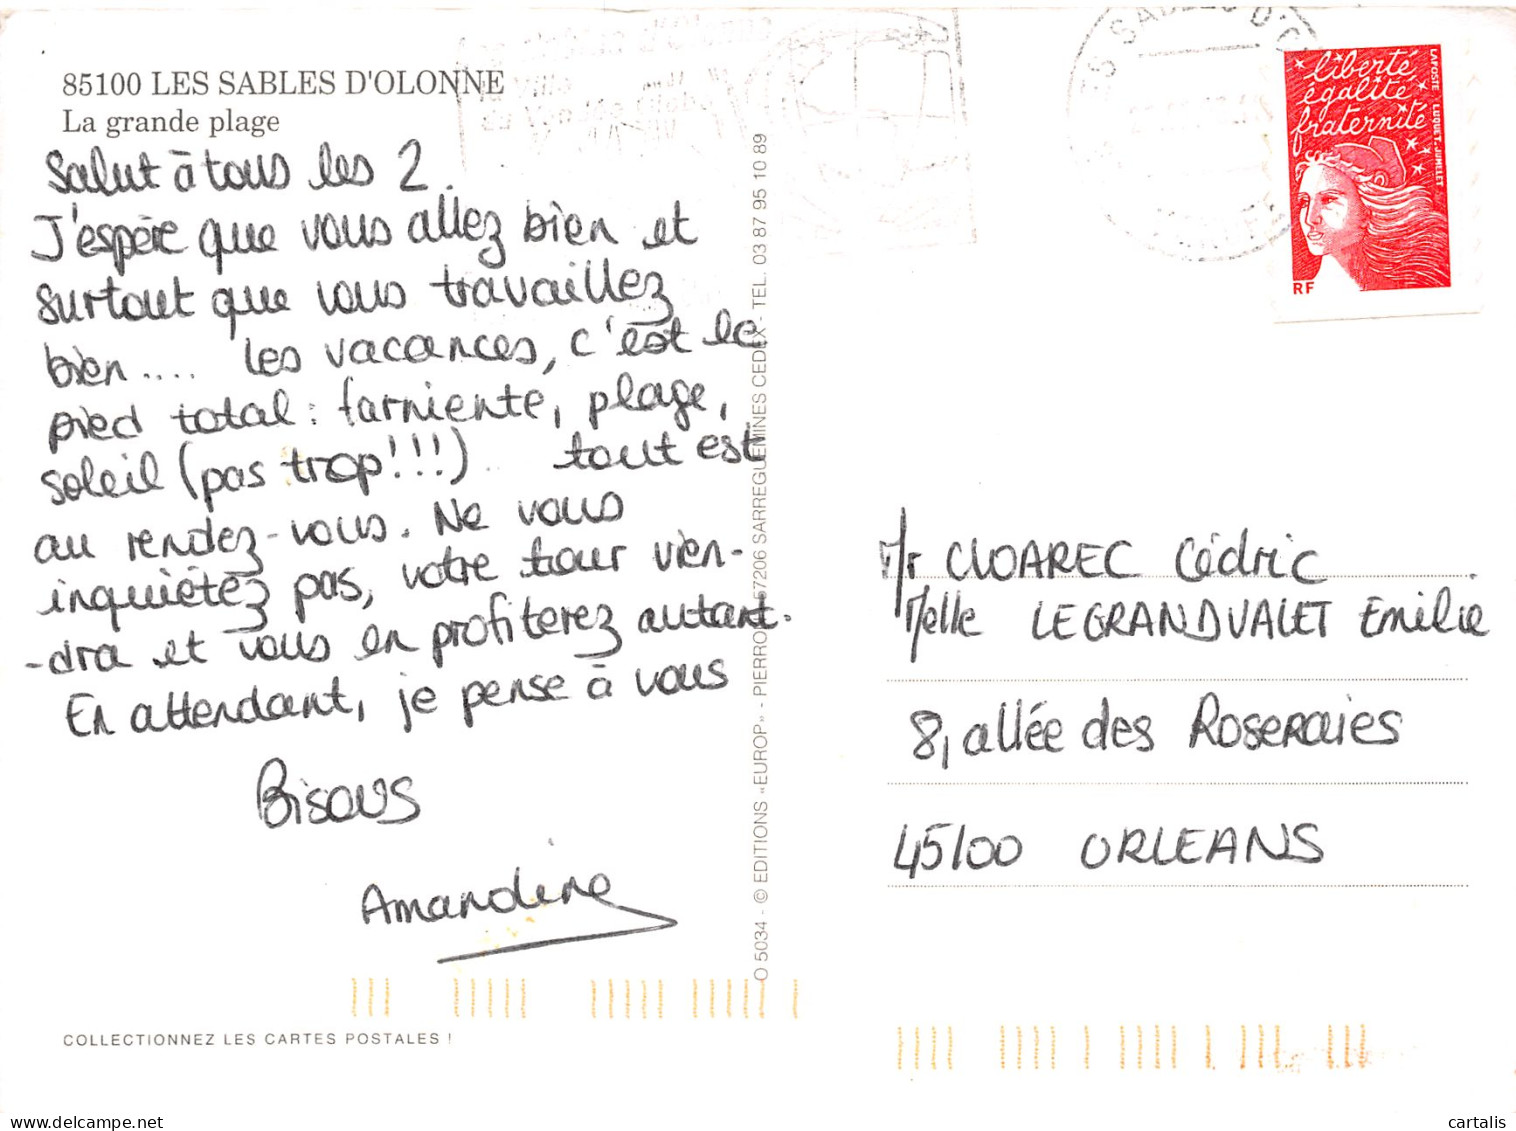 85100 LES SABLES D'OLONNE
La grande plage
Salut à tous les 2.
J'espère que vous allez bien et
surtout que vous travaillez
bien.... Les vacances, c'est le
pied total : farniente, plage,
soleil (pas trop!!!) tout est
au rendez-vous. Ne vous
inquiétez pas, votre tour vien-
-dra et vous en profiterez autant.
En attendant, je pense à vous
Bisous
Amandine
COLLECTIONNEZ LES CARTES POSTALES !
O 5034 - © EDITIONS «EUROP» - PIERRO 57206 SARREGUEMINES CEDEX - TEL. 03 87 95 10 89
LES SABLES D'O
liberté
égalité
fraternité
RF
LA POSTE LUQUET-JUMELET
Mr CLOAREC Cédric
Melle LEGRANDVALET Emilie
8, allée des Roseraies
45100 ORLEANS
cartalis